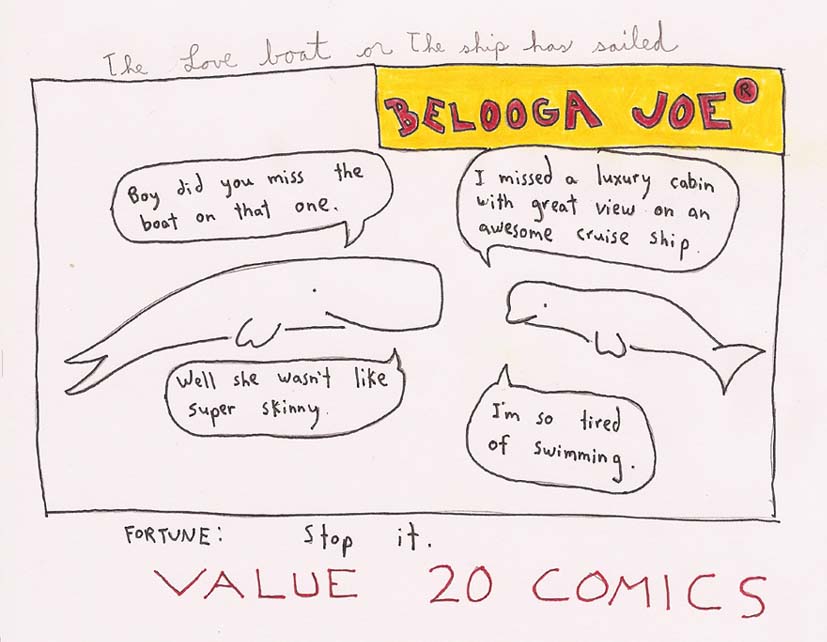 The Love boat or The ship has sailed
BELOOGA JOE®
Boy did you miss the
boat on that one.
I missed a luxury cabin
with great view on an
awesome cruise ship.
Well she wasn't like
super skinny.
I'm so tired
of swimming.
FORTUNE: Stop it.
VALUE 20 COMICS